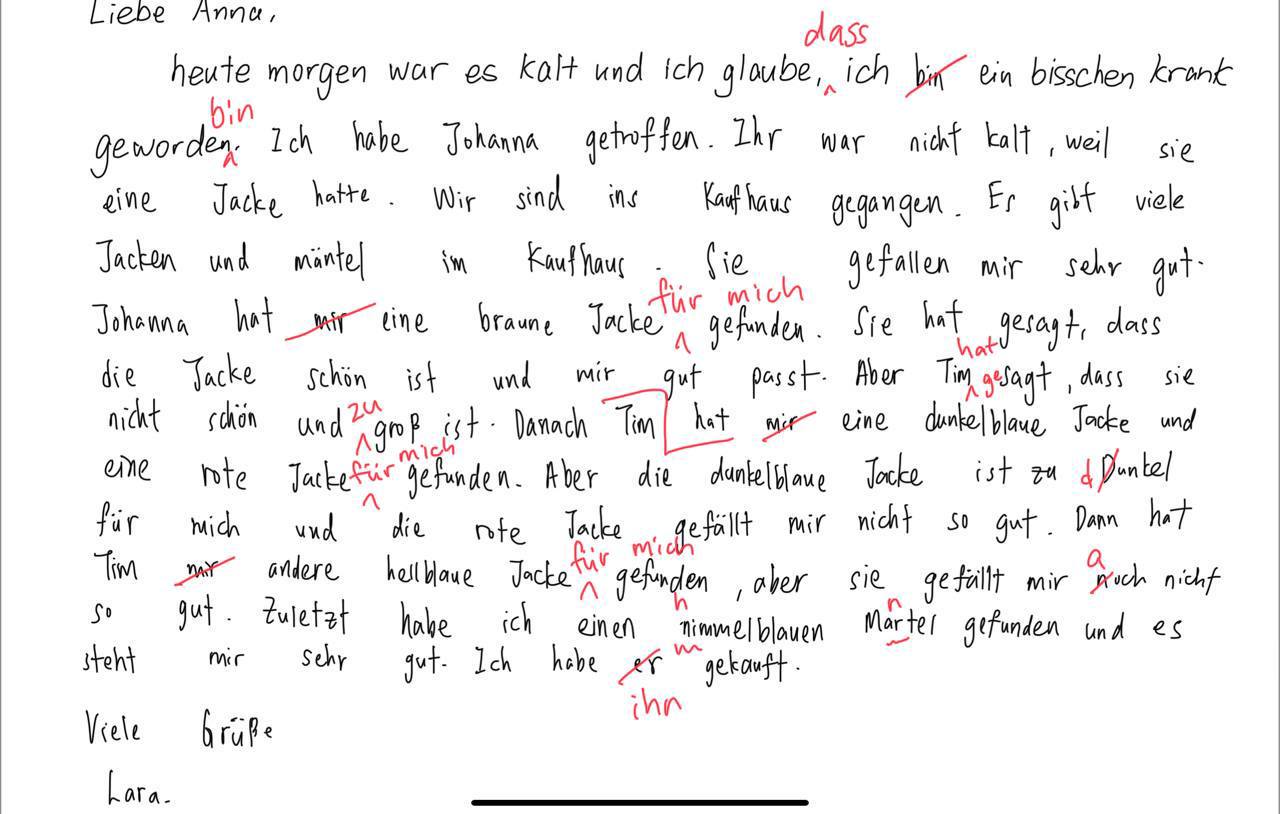 Liebe Anna,
dass
heute morgen war es kalt und ich glaube, ich bin ein bisschen krank
bin
geworden. Ich habe Johanna getroffen. Ihr war nicht kalt, weil sie
eine Jacke hatte. Wir sind ins Kaufhaus gegangen. Es gibt viele
Jacken und mäntel im Kaufhaus. Sie gefallen mir sehr gut.
für mich
Johanna hat mir eine braune Jacke gefunden. Sie hat gesagt, dass
hat
die Jacke schön ist und mir gut passt. Aber Tim gesagt, dass sie
zu
nicht schön und groß ist. Danach Tim hat mir eine dunkelblaue Jacke und
für mich
eine rote Jacke gefunden. Aber die dunkelblaue Jacke ist zu d Dunkel
für mich und die rote Jacke gefällt mir nicht so gut. Dann hat
für mich a
Tim mir andere hellblaue Jacke gefunden, aber sie gefällt mir noch nicht
h n
so gut. Zuletzt habe ich einen nimmelblauen Martel gefunden und es
m
steht mir sehr gut. Ich habe er gekauft.
ihn
Viele Grüße
Lara.